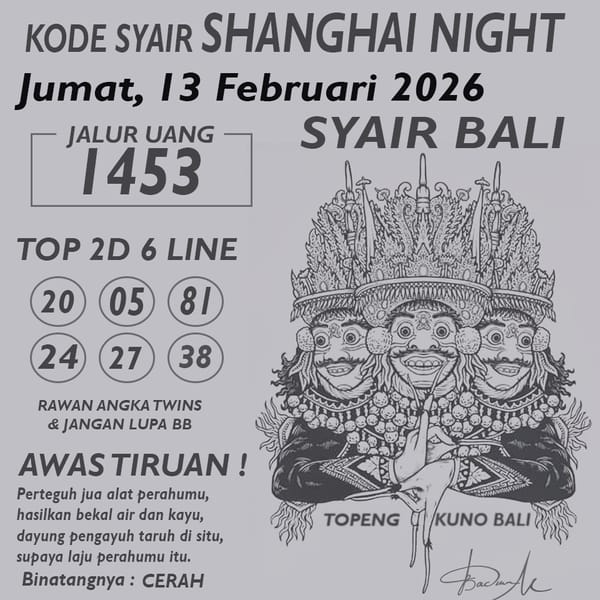 KODE SYAIR SHANGHAI NIGHT
Jumat, 13 Februari 2026
JALUR UANG
1453
SYAIR BALI
TOP 2D 6 LINE
20 05 81
24 27 38
RAWAN ANGKA TWINS
& JANGAN LUPA BB
AWAS TIRUAN !
Perteguh jua alat perahumu,
hasilkan bekal air dan kayu,
dayung pengayuh taruh di situ,
supaya laju perahumu itu.
Binatangnya : CERAH
TOPENG KUNO BALI